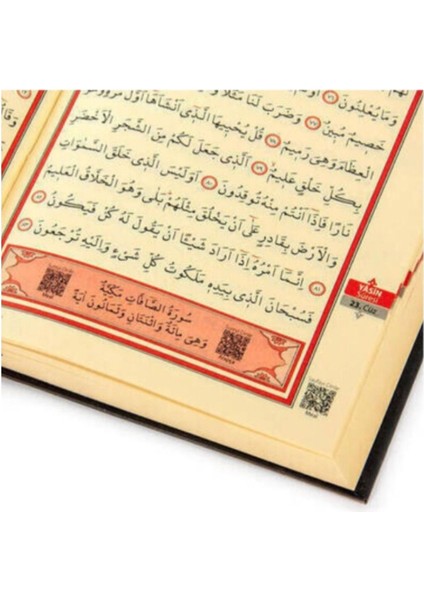 لَهُمْ
وَمَا يُعْلِنُونَ ﴿٧٦﴾ اَوَلَمْ
خَصِيمٌ مُبِينٌ ﴿٧٧﴾ وَضَرَبَ لَنَا مَثَلًا
الْعِظَامَ وَهِىَ رَمِيمٌ ﴿٧٨﴾ قُلْ يُحْيِيهَا الَّذِى اَنْشَاَهَا اَوَّلَ مَرَّةٍ وَهُوَ
بِكُلِّ خَلْقٍ عَلِيمٌ ﴿٧٩﴾ اَلَّذِى جَعَلَ لَكُمْ مِنَ الشَّجَرِ الْاَخْضَرِ
نَارًا فَاِذَا اَنْتُمْ مِنْهُ تُوقِدُونَ ﴿٨٠﴾ اَوَلَيْسَ الَّذِى خَلَقَ السَّمٰوَاتِ
وَالْاَرْضَ بِقَادِرٍ عَلٰٓى اَنْ يَخْلُقَ مِثْلَهُمْ بَلٰى وَهُوَ الْخَلَّاقُ الْعَلِيمُ ﴿٨١﴾
اِنَّمَٓا اَمْرُهُٓ اِذَٓا اَرَادَ شَيْـًٔا اَنْ يَقُولَ لَهُ كُنْ فَيَكُونُ ﴿٨٢﴾
فَسُبْحَانَ الَّذِى بِيَدِهِ مَلَكُوتُ كُلِّ شَىْءٍ وَاِلَيْهِ تُرْجَعُونَ ﴿٨٣﴾
سُورَةُ الصَّافَّاتِ مَكِّيَّةٌ
وَهِىَ مِائَةٌ وَاثْنَتَانِ وَثَمَانُونَ اٰيَةً
YÂSİN
Sûresi
23. Cüz